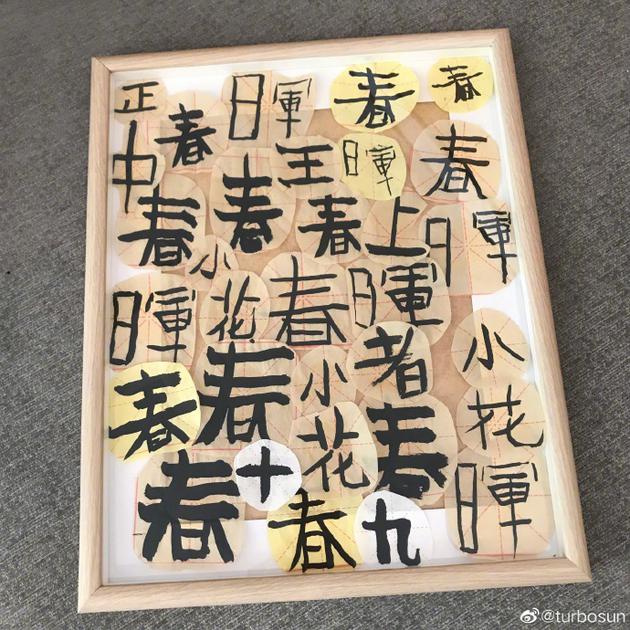 正 暉 春 春
中 春 王 暉 春
春 春 春 上 暉
小
暉 花 春 暉 小
春 春 小 者 花
春 十 花 春 暉
春 九
@turbosun